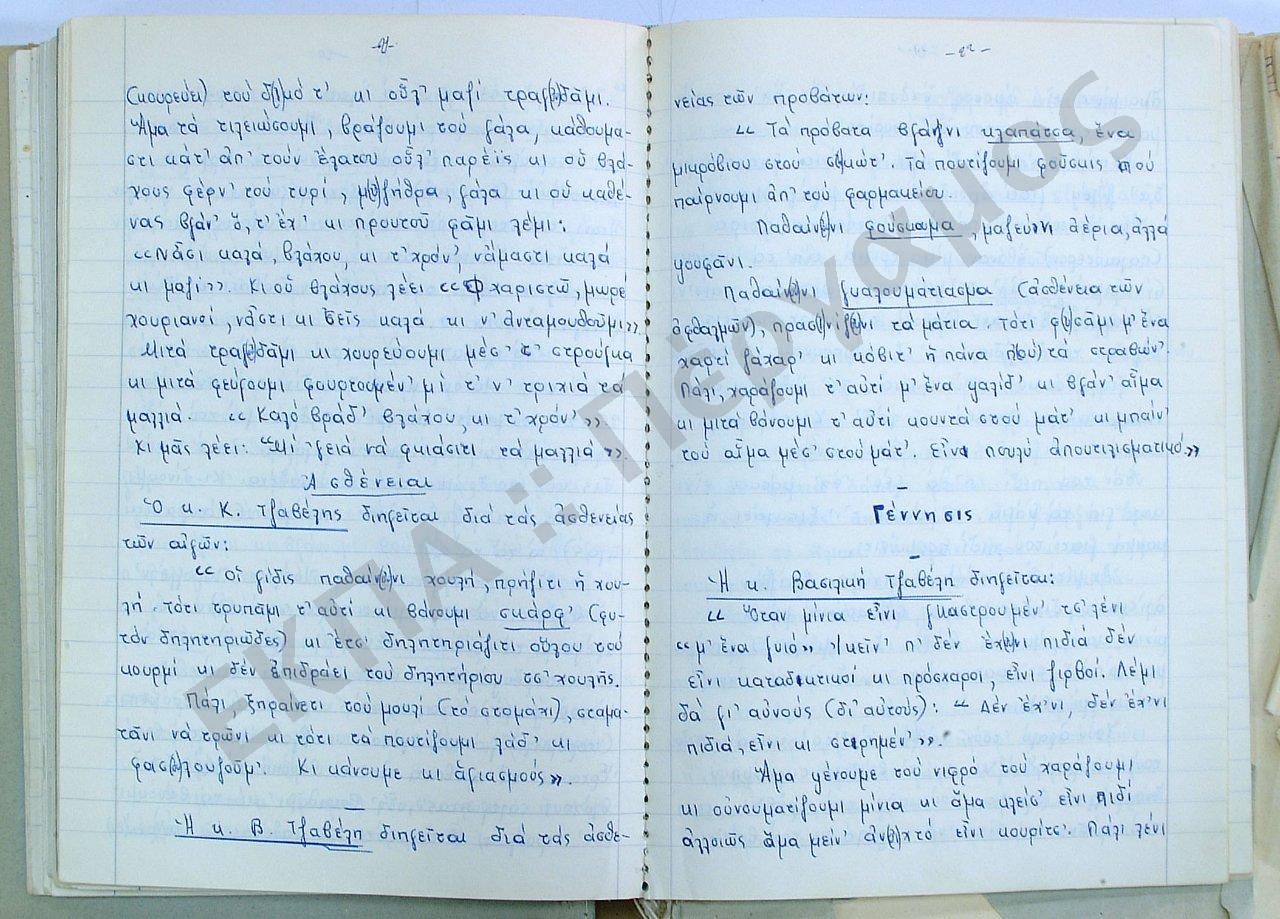 -21-
(κουρεύει) τού δ(ι)μό τ' κι οὗλ' μαζί τραγ(ου)δᾶμι.
Ἅμα τά τιλειώσουμι, βράζουμ τού γάλα, κάθουμα-
στι κάτ' ἀπ' τούν ἔλατου οὗλ' παρέϊς κι οὑ βλά-
χους φέρν' τού τυρί, μ(υ)ζήθρα, γάλα κι οὑ καθέ-
νας βγάν' ὅ,τ' ἔχ' κι προυτοῦ φᾶμι λέμι:
«Νἆσι καλά, βλάχου, κι τ' χρόν', νἄμαστι καλά
κι μαζί». Κι οὑ βλάχους λέει «Φχαριστῶ, μωρέ
χουριανοί, νἆστι κι σεῖς καλά κι ν' ἀνταμουθοῦμι»
Μιτά τραγ(ου)δᾶμι κι χουρεύουμι μέσ' τ' στρούγκα
κι μιτά φεύγουμι φουρτουμέν' μί τ'ν' τριχιά τά
μαλλιά. «Καλό βράδ' βλάχου, κι τ' χρόν'»
Κι μᾶς λέει: «Μί 'γειά νά φκιάσιτι τά μαλλιά».
Ἀσθένειαι
Ὁ κ. Κ. Τζαβέλης διηγεῖται διά τάς ἀσθενείας
τῶν αἰγῶν:
«Οἱ γίδις παθαίν(ου)νι χουλή, πρήζιτι ἡ χου-
λή τότι τρυπᾶμι τ' αὐτί κι βάνουμι σκάρφ' (φυ-
τόν δηλητηριῶδες) κι ἔτσ' δηλητηριάζιτι οὗλου τού
κουρμί κι δέν ἐπιδράει τού δηλητήριου τσ' χουλῆς.
Πάλι ξηραίνετι τού μουλί (τό στομάχι), σταμα-
τᾶνι νά τρῶνι κι τότι τά πουτίζουμι λάδ' κι
φασ(κ)λουζούμ'. Κι κάνουμε κι ἁγιασμούς».
Ἡ κ. Β. Τζαβέλη διηγεῖται διά τάς ἀσθε-
-22-
νείας τῶν προβάτων:
«Τά πρόβατα βγά(ζ)νι κλαπάτσα, ἕνα
μικρόβιου στού σ(υ)κώτ'. Τά πουτίζουμι φοῦσκις πού
παίρνουμι ἀπ' τού φαρμακείου.
Παθαίν(ου)νι φούσκωμα, μαζεύ'νι ἀέρια, ἀλλά
ψουφᾶνι.
Παθαίν(ου)νι γυαλουμάτιασμα (ἀσθένεια τῶν
ὀφθαλμῶν), πρασ(ι)νίζ(ου)νι τά μάτια. Τότι φ(υ)σᾶμι μ' ἕνα
χαρτί ζάχαρ' κι κόβιτ' ἡ πάνα π(οὺ) τά στραβών'.
Πάλι, χαράζουμι τ' αὐτί μ' ἕνα ψαλίδ' κι βγάν' αἷμα
κι μιτά βάνουμι τ' αὐτί κουντά στού μάτ' κι μπαίν'
τού αἷμα μέσ' στού μάτ'. Εἶνι πουλύ ἀπουτιλισματικό»
Γέννησις
Ἡ κ. Βασιλική Τζαβέλη διηγεῖται:
«Ὅταν μίνια εἶνι γκαστρουμέν' τσ' λένι
«μ' ἕνα γυιό» 'κεῖν' π' δέν ἔχ(ου)ν πιδιά δέν
εἶνι καταδικτικοί κι πρόσχαροι, εἶνι ζιρβοί. Λέμι
δά γι' αὐνούς (δι' αὐτούς): «Δέν ἔχ'νι, δέν ἔχ'νι
πιδιά, εἶνι κι στειρημέν'».
Ἅμα ψένουμε τού νιφρό τού χαράζουμι
κι οὑνουματίζουμι μίνια κι ἅμα κλείσ' εἶνι πιδί
ἀλλοιῶς ἅμα μείν' ἀν(οι)χτό εἶνι κουρίτσ'. Πάλι λένι
ΕΚΠΑ :: ΠΕΡΓΑΜΟΣ